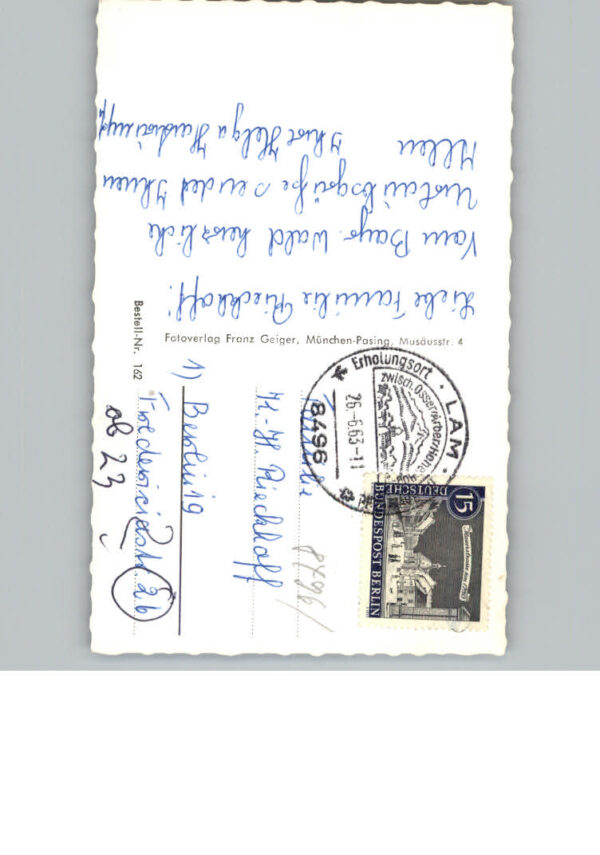 Liebe Familie Rieckhoff!
Vom Bayr. Wald herzliche
Urlaubsgrüße sendet Ihnen
Allen
Ihre Helga
Fotoverlag Franz Geiger, München-Pasing, Musäusstr. 4
Bestell-Nr. 162
Erholungsort · LAM ·
zwisch. Osser u. Arber
26.-6.63-11
8496
15
DEUTSCHE
BUNDESPOST BERLIN
Familie
H.-H. Rieckhoff
1) Berlin 19
Fredericiastr. 26
ab 23
8496/